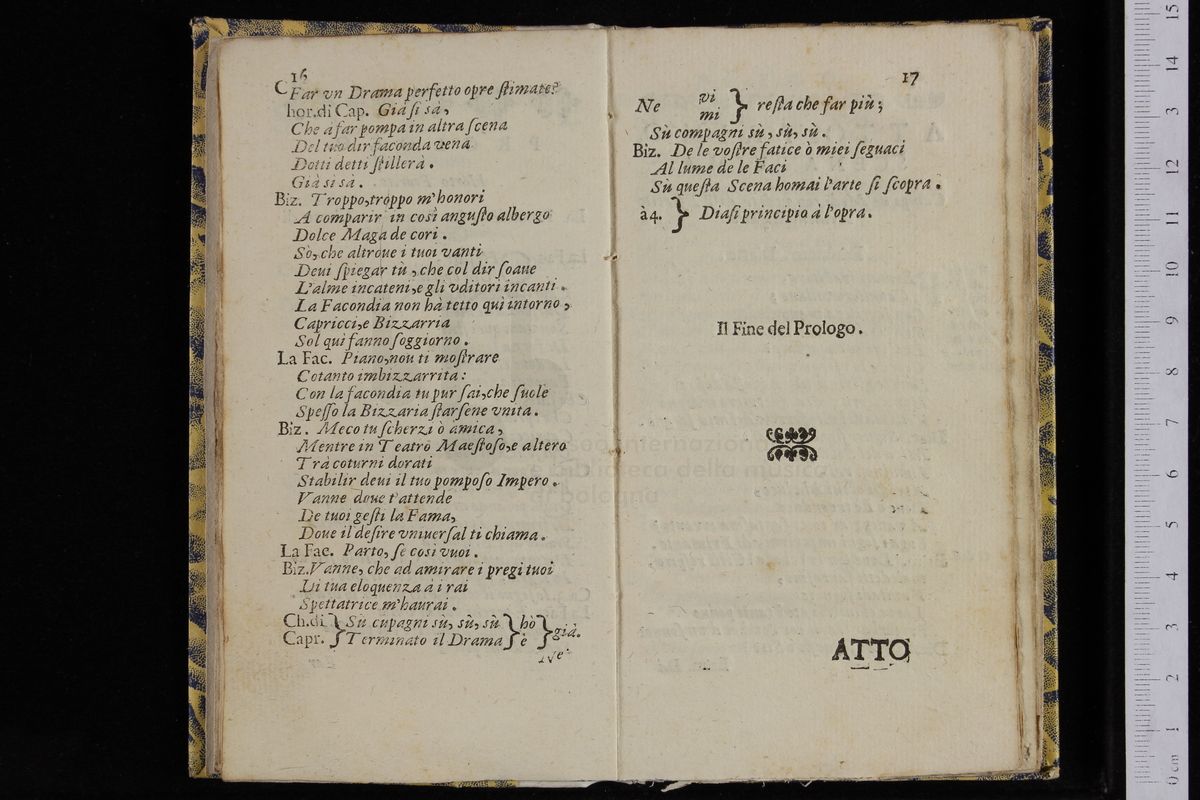 16
Far vn Drama perfetto opre ſtimate?
Chor.di Cap. Già ſi sà,
Che a far pompa in altra ſcena
Del tuo dir faconda vena
Dotti detti ſtillerà.
Già si sà.
Biz. Troppo,troppo m'honori
A comparir in così anguſto albergo
Dolce Maga de cori.
Sò, che altroue i tuoi vanti
Deui ſpiegar tù, che col dir ſoaue
L'alme incateni,e gli vditori incanti.
La Facondia non hà tetto quì intorno,
Capricci,e Bizzarria
Sol quì fanno ſoggiorno.
La Fac. Piano,nou ti moſtrare
Cotanto imbizzarrita:
Con la facondia tu pur ſai,che ſuole
Speſſo la Bizzaria ſtarſene vnita.
Biz. Meco tu ſcherzi ò amica,
Mentre in Teatro Maeſtoſo,e altero
Trà coturni dorati
Stabilir deui il tuo pompoſo Impero.
Vanne doue t'attende
De tuoi geſti la Fama,
Doue il deſire vniuerſal ti chiama.
La Fac. Parto, ſe così vuoi.
Biz.Vanne, che ad amirare i pregi tuoi
Di tua eloquenza à i rai
Spettatrice m'haurai.
Ch.di } Sù cupagni sù, sù, sù } hò } già.
Capr. } Terminato il Drama } è
Ne
17
Ne vi } reſta che far più;
mi
Sù compagni sù, sù, sù.
Biz. De le voſtre fatice ò miei ſeguaci
Al lume de le Faci
Sù queſta Scena homai l'arte ſi ſcopra.
à 4. } Diaſi principio à l'opra.
Il Fine del Prologo.
ATTO
museo internazionale
e biblioteca della musica
di bologna
0 cm 1 2 3 4 5 6 7 8 9 10 11 12 13 14 15